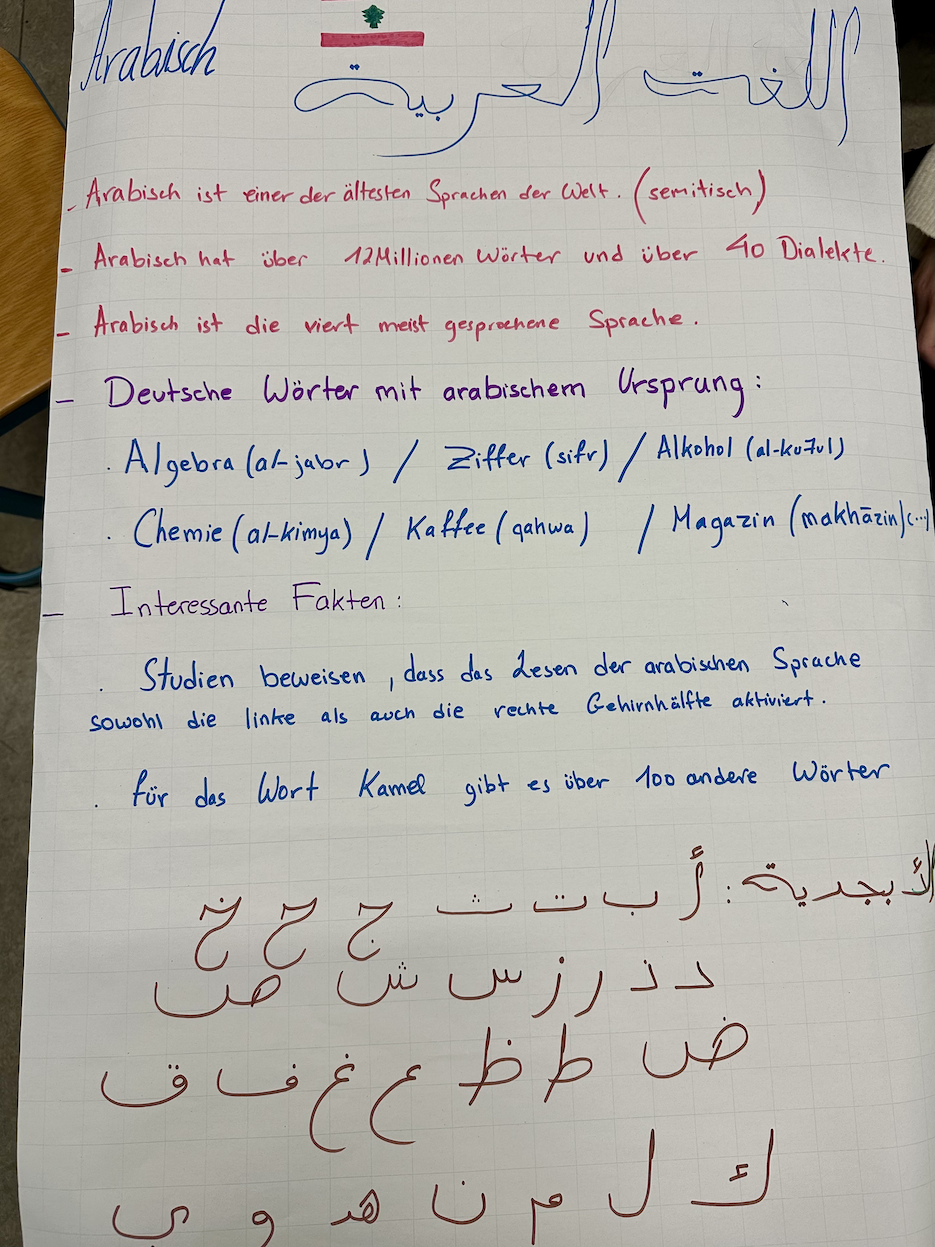 Arabisch
اللغت العربية
- Arabisch ist einer der ältesten Sprachen der Welt. (semitisch)
- Arabisch hat über 12 Millionen Wörter und über 40 Dialekte.
- Arabisch ist die viert meist gesprochene Sprache.
- Deutsche Wörter mit arabischem Ursprung:
. Algebra (al-jabr) / Ziffer (sifr) / Alkohol (al-ku7ul)
. Chemie (al-kimya) / Kaffee (qahwa) / Magazin (makhāzin) (...)
- Interessante Fakten:
. Studien beweisen, dass das Lesen der arabischen Sprache
sowohl die linke als auch die rechte Gehirnhälfte aktiviert.
. für das Wort Kamel gibt es über 100 andere Wörter
الأبجدية: أ ب ت ث ج ح خ
د ذ ر ز س ش ص
ض ط ظ ع غ ف ق
ك ل م ن هـ و ي